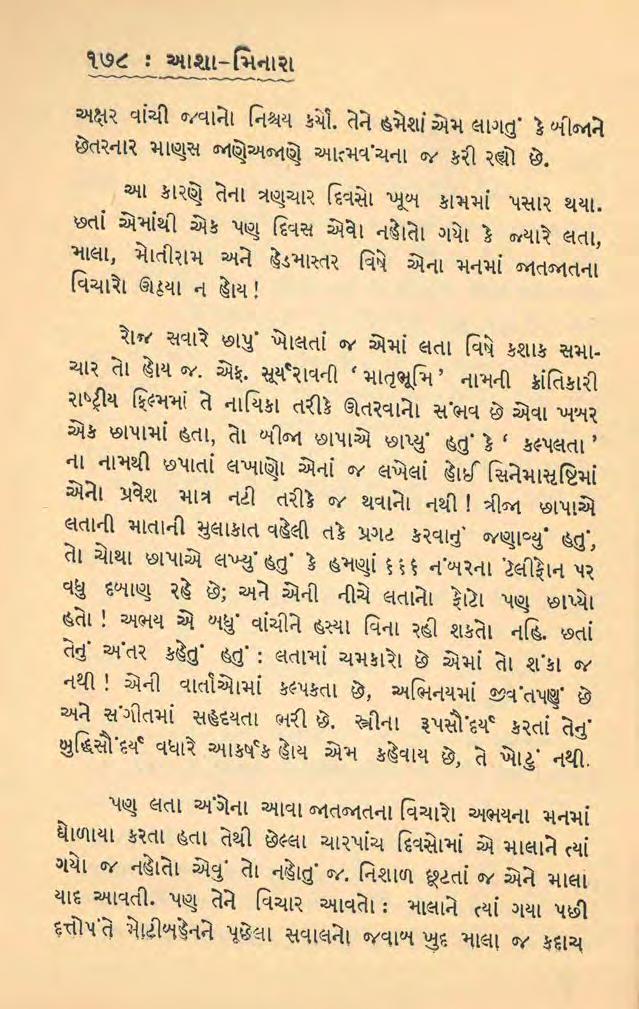 ૧૭૮ : આશા-મિનારા
અક્ષર વાંચી જવાનો નિશ્ચય કર્યો. તેને હમેશાં એમ લાગતું કે બીજાને
છેતરનાર માણસ જાણેઅજાણે આત્મવંચના જ કરી રહ્યો છે.
આ કારણે તેના ત્રણચાર દિવસો ખૂબ કામમાં પસાર થયા.
છતાં એમાંથી એક પણ દિવસ એવો નહોતો ગયો કે જ્યારે લતા,
માલા, મોતીરામ અને હેડમાસ્તર વિષે એના મનમાં જાતજાતના
વિચારો ઊઠ્યા ન હોય!
રોજ સવારે છાપું ખોલતાં જ એમાં લતા વિષે કશાક સમા-
ચાર તો હોય જ. એફ. સૂર્યરાવની ‘માતૃભૂમિ’ નામની ક્રાંતિકારી
રાષ્ટ્રીય ફિલ્મમાં તે નાયિકા તરીકે ઊતરવાનો સંભવ છે એવા ખબર
એક છાપામાં હતા, તો બીજા છાપાએ છાપ્યું હતું કે ‘કલ્પલતા’
ના નામથી છપાતાં લખાણો એનાં જ લખેલાં હોઈ સિનેમાસૃષ્ટિમાં
એનો પ્રવેશ માત્ર નટી તરીકે જ થવાનો નથી! ત્રીજા છાપાએ
લતાની માતાની મુલાકાત વહેલી તકે પ્રગટ કરવાનું જણાવ્યું હતું,
તો ચોથા છાપાએ લખ્યું હતું કે હમણાં ૬૬૬ નંબરના ટેલીફોન પર
વધુ દબાણ રહે છે; અને એની નીચે લતાનો ફોટો પણ છાપ્યો
હતો! અભય એ બધું વાંચીને હસ્યા વિના રહી શકતો નહિ. છતાં
તેનું અંતર કહેતું હતું : લતામાં ચમકારો છે એમાં તો શંકા જ
નથી! એની વાર્તાઓમાં કલ્પકતા છે, અભિનયમાં જીવંતપણું છે
અને સંગીતમાં સહૃદયતા ભરી છે. સ્ત્રીના રૂપસૌંદર્ય કરતાં તેનું
બુદ્ધિસૌંદર્ય વધારે આકર્ષક હોય એમ કહેવાય છે, તે ખોટું નથી.
પણ લતા અંગેના આવા જાતજાતના વિચારો અભયના મનમાં
ઘોળાયા કરતા હતા તેથી છેલ્લા ચારપાંચ દિવસોમાં એ માલાને ત્યાં
ગયો જ નહોતો એવું તો નહોતું જ. નિશાળ છૂટતાં જ એને માલા
યાદ આવતી. પણ તેને વિચાર આવતો : માલાને ત્યાં ગયા પછી
દત્તોપંતે મોટીબહેનને પૂછેલા સવાલનો જવાબ ખુદ માલા જ કદાચ